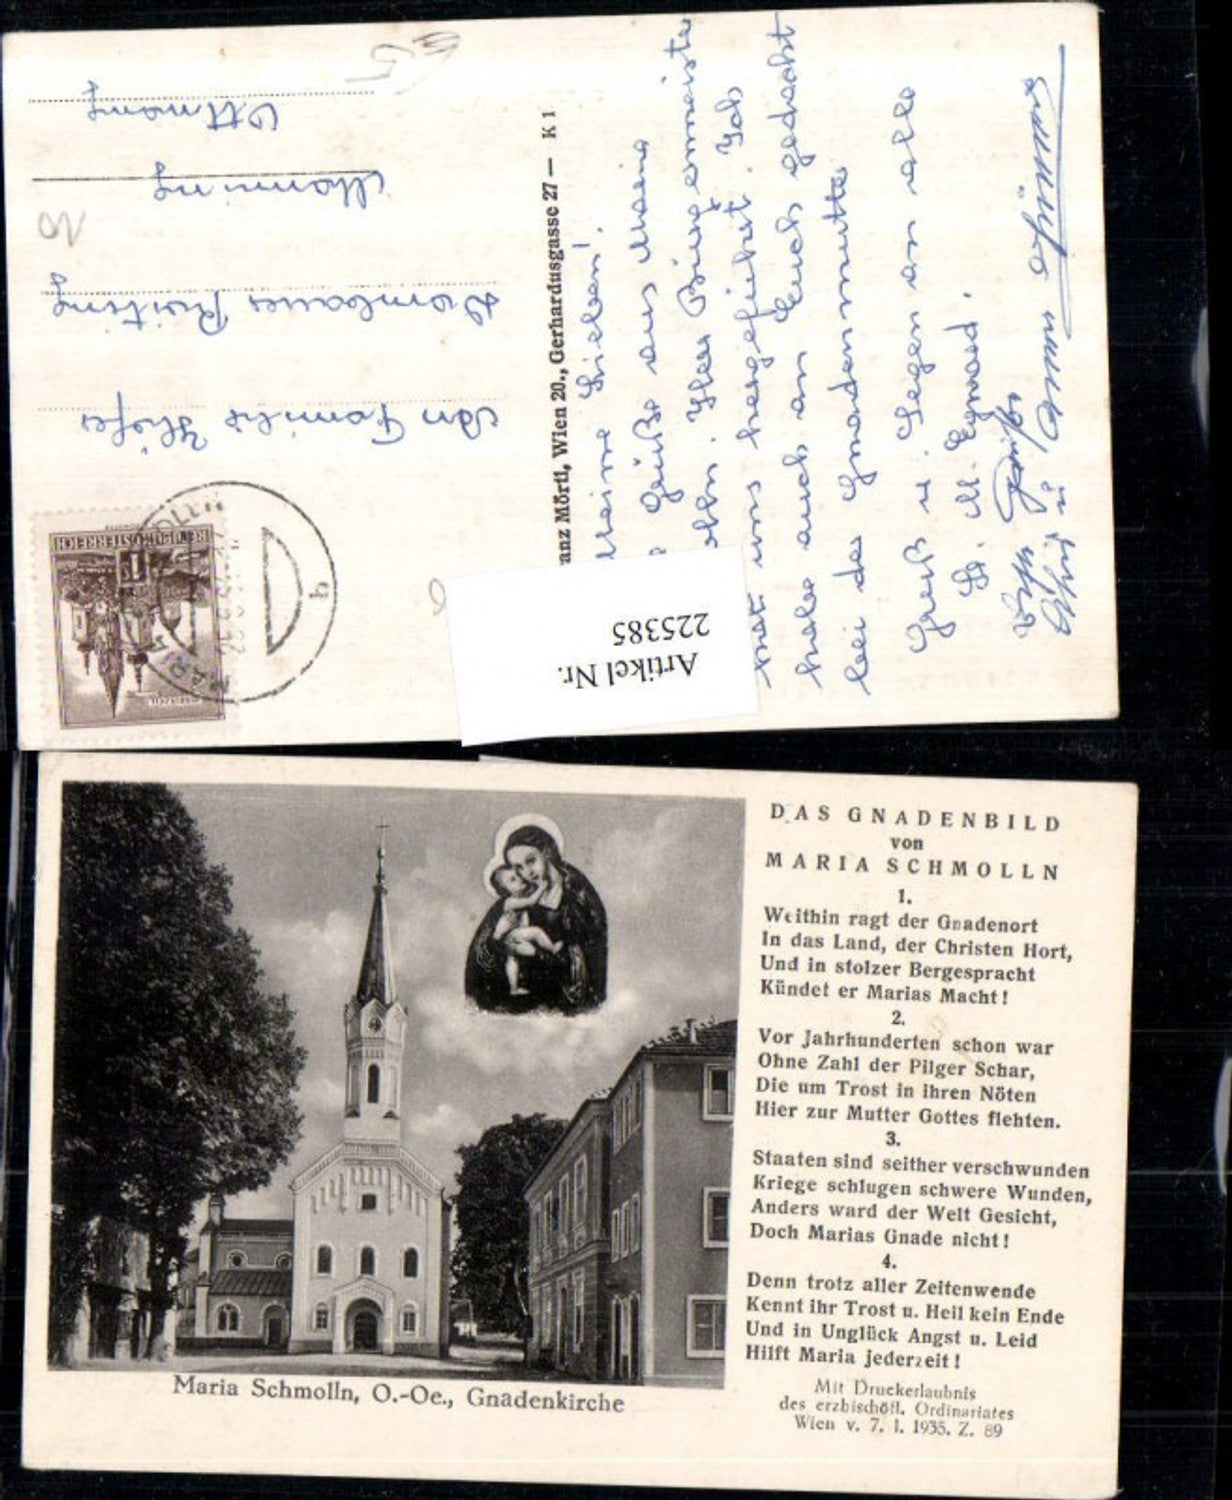 An Familie
Ottnang
Franz Mörtl, Wien 20., Gerhardusgasse 27 — K 1
Meine Lieben!
Grüße aus Maria
Herr Bürgermeister
hat uns hergeführt. Ich
habe auch an Euch gedacht
bei der Gnadenmutter
Gruß u. Segen an alle
Sr. M.
Artikel Nr.
225385
REPUBLIK ÖSTERREICH
MARIAZELL
1
MARIA SCHMOLLN
b
DAS GNADENBILD
von
MARIA SCHMOLLN
1.
Weithin ragt der Gnadenort
In das Land, der Christen Hort,
Und in stolzer Bergespracht
Kündet er Marias Macht!
2.
Vor Jahrhunderten schon war
Ohne Zahl der Pilger Schar,
Die um Trost in ihren Nöten
Hier zur Mutter Gottes flehten.
3.
Staaten sind seither verschwunden
Kriege schlugen schwere Wunden,
Anders ward der Welt Gesicht,
Doch Marias Gnade nicht!
4.
Denn trotz aller Zeitenwende
Kennt ihr Trost u. Heil kein Ende
Und in Unglück Angst u. Leid
Hilft Maria jederzeit!
Mit Druckerlaubnis
des erzbischöfl. Ordinariates
Wien v. 7. 1. 1935. Z. 89
Maria Schmolln, O.-Oe., Gnadenkirche